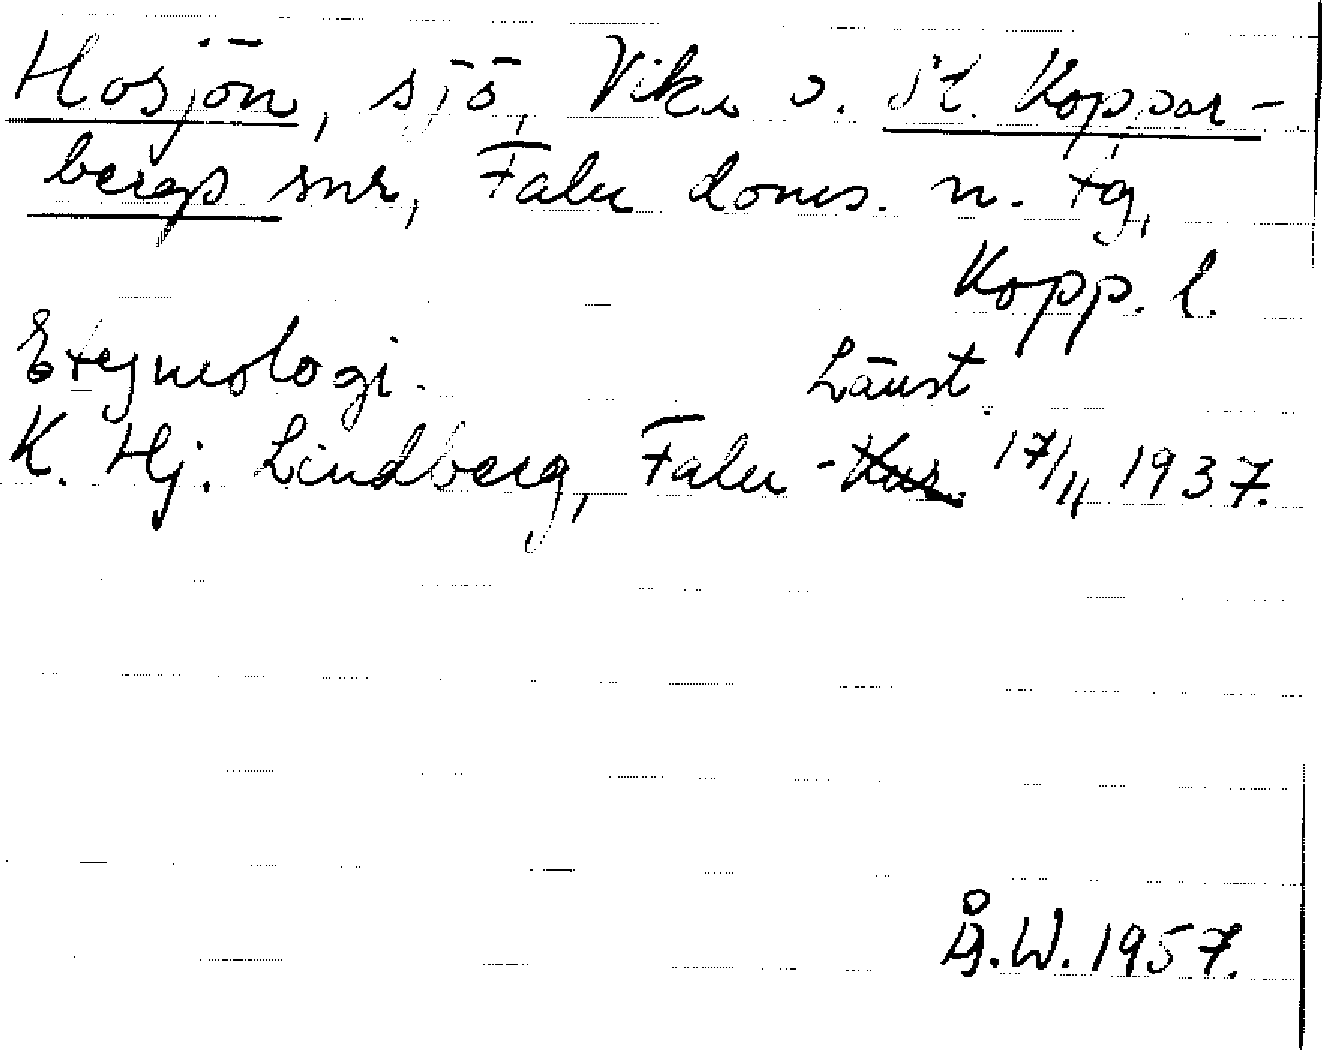 Hosjön, sjö, Vika o. St. Koppar-
bergs snr, Falu doms. n. tg,
Kopp. l.
Etymologi.
Länst.
K. Hj. Lindberg, Falu - Kur. 17/11 1937.
Åg.W. 1957.